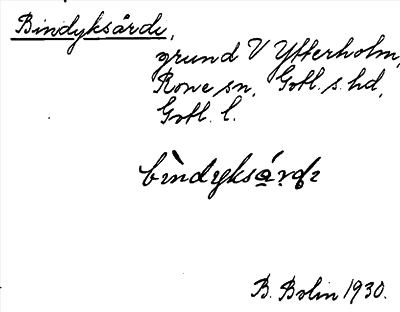 Bindyksårde,
grund V Ytterholm,
Rone sn, Gotl. s. hd,
Gotl. l.
B. Bolin 1930.